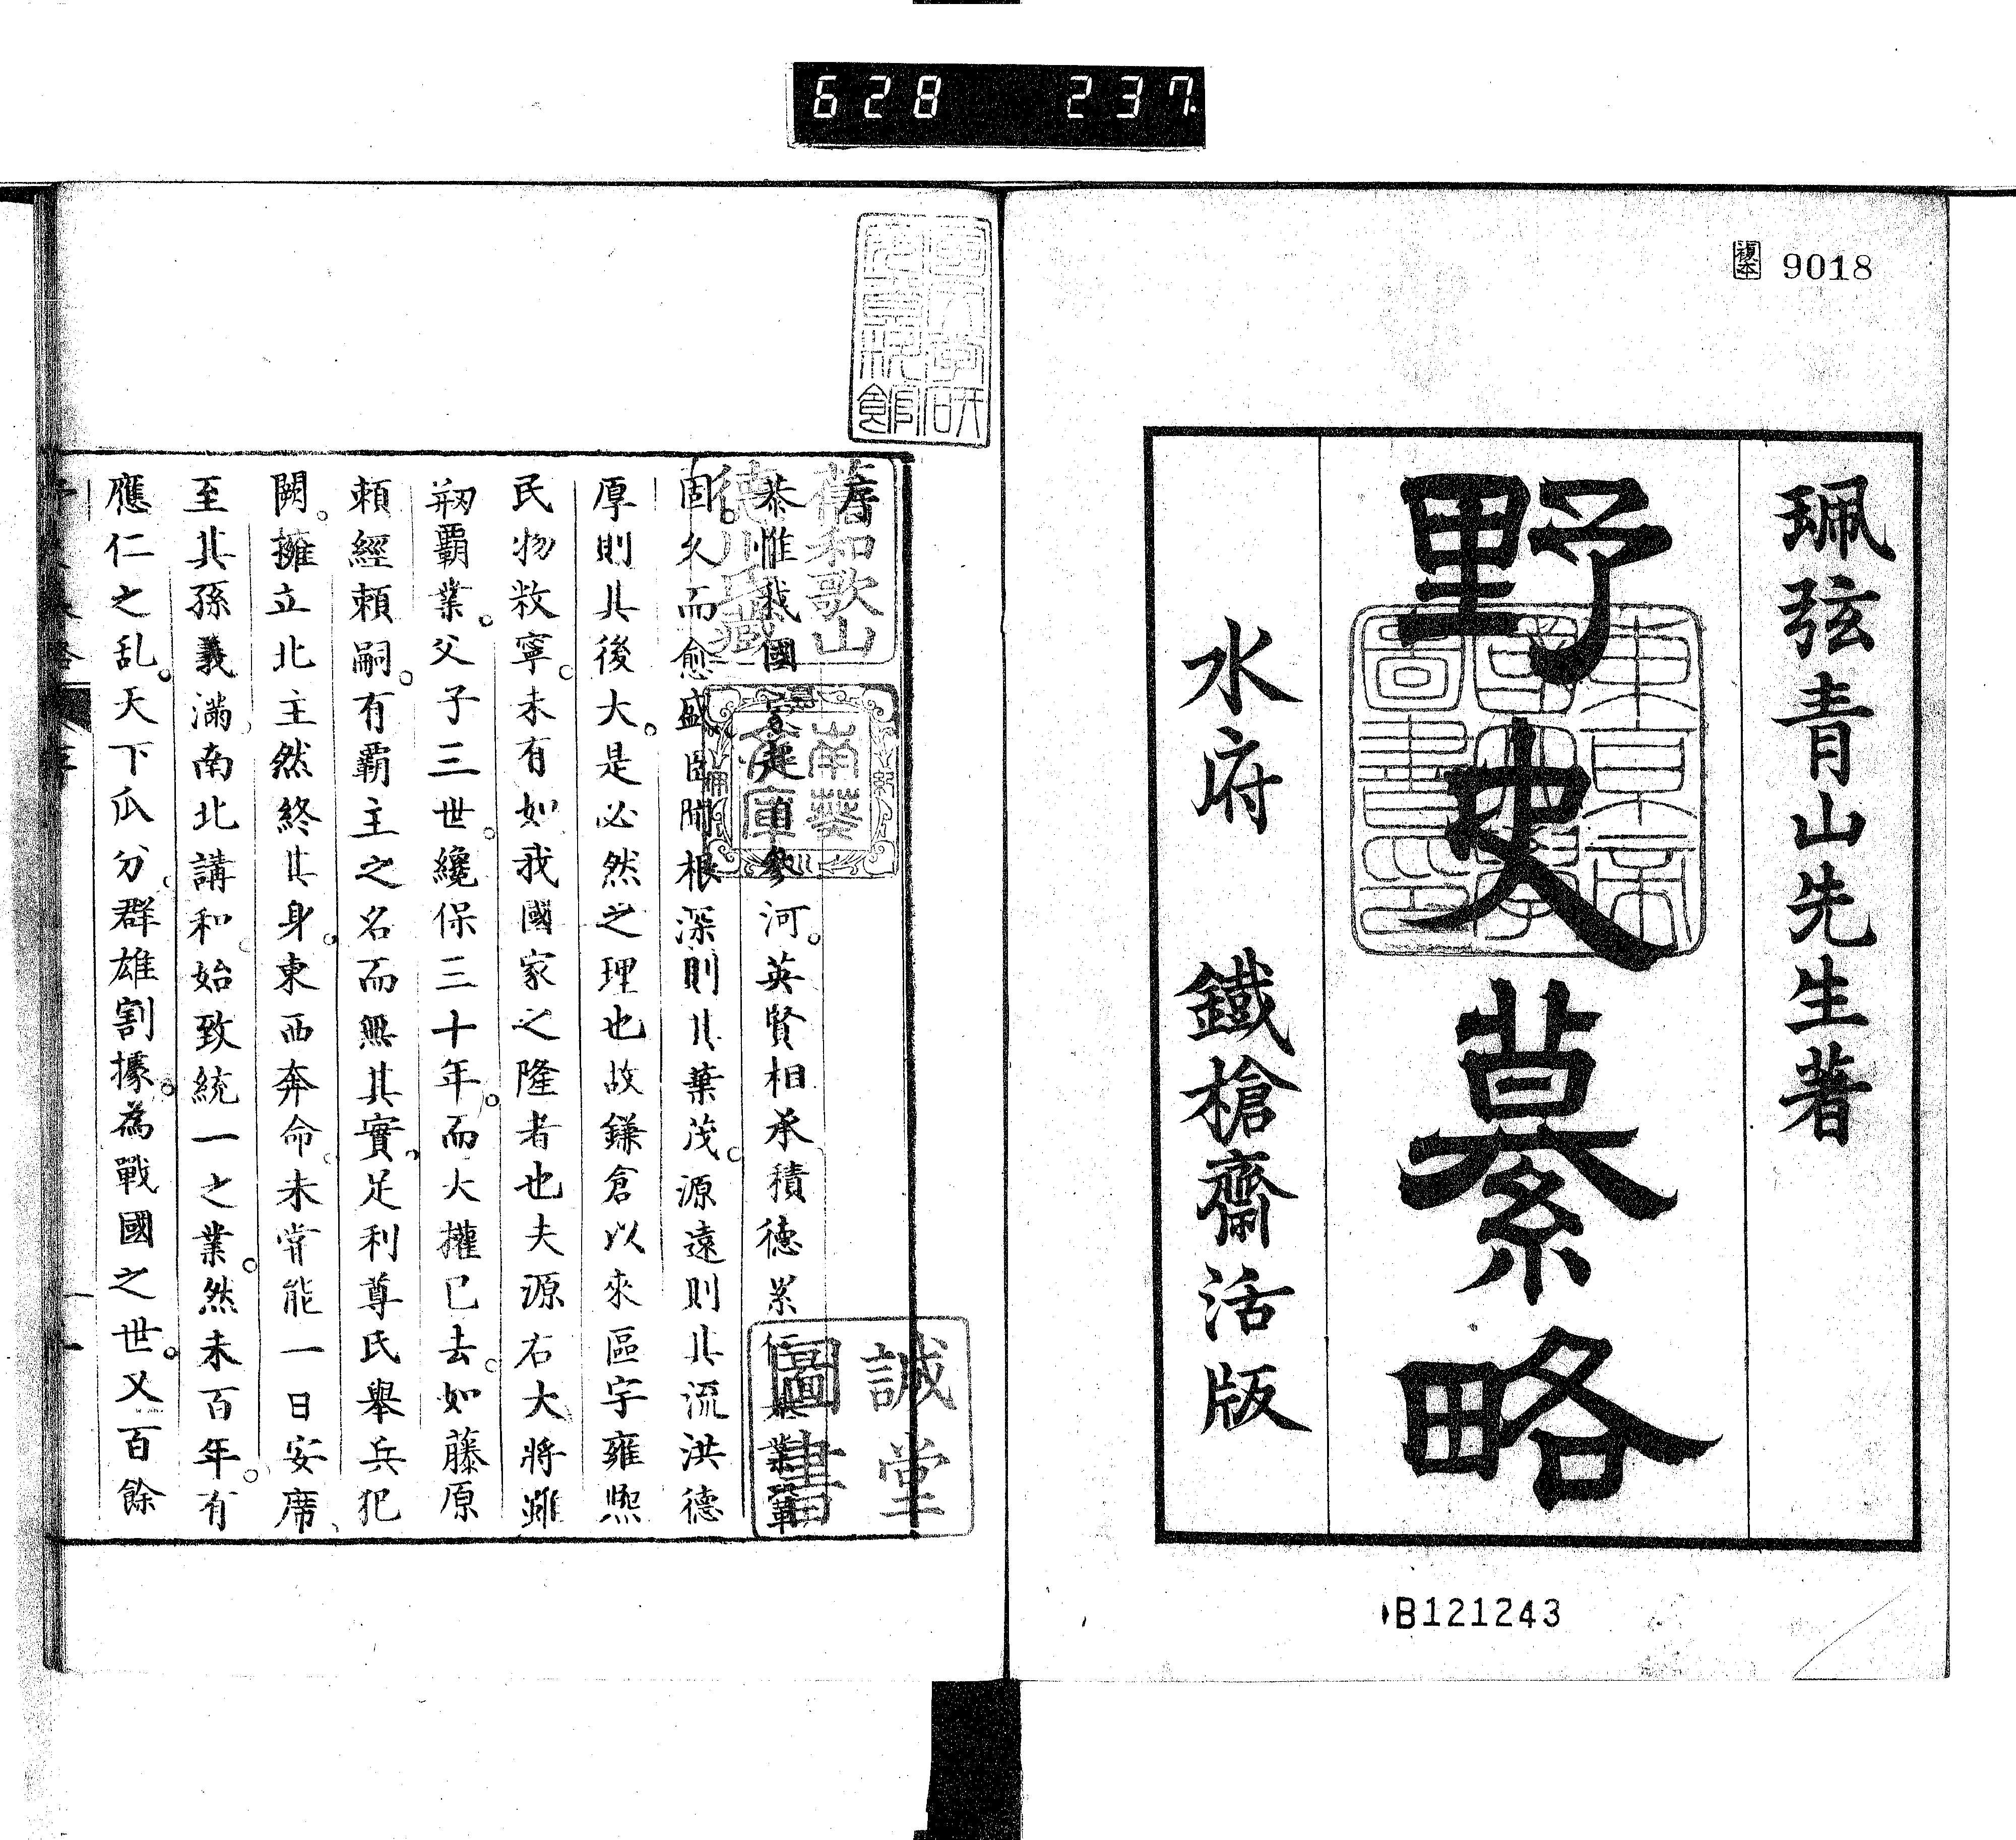 628 237
複本 9018
珮弦青山先生著
野史纂略
水府 鐵槍齋活版
B121243
舊和歌山
德川氏藏
南葵
文庫
誠堂
圖書
序
恭惟我國家起自參河。英賢相承積德累仁基業鞏
固。久而愈盛
根深則其葉茂。源遠則其流洪德
厚則其後大。是必然之理也故鎌倉以來區宇雍熙
民物敉寧。未有如我國家之隆者也夫源右大將雖
剏覇業。父子三世。纔保三十年。而大權已去。如藤原
頼經頼嗣。有覇主之名而無其實。足利尊氏舉兵犯
闕。擁立北主然終其身。東西奔命。未甞能一日安席、
至其孫義滿、南北講和、始致統一之業。然未百年。有
應仁之乱。天下瓜分。群雄割據。為戰國之世。又百餘